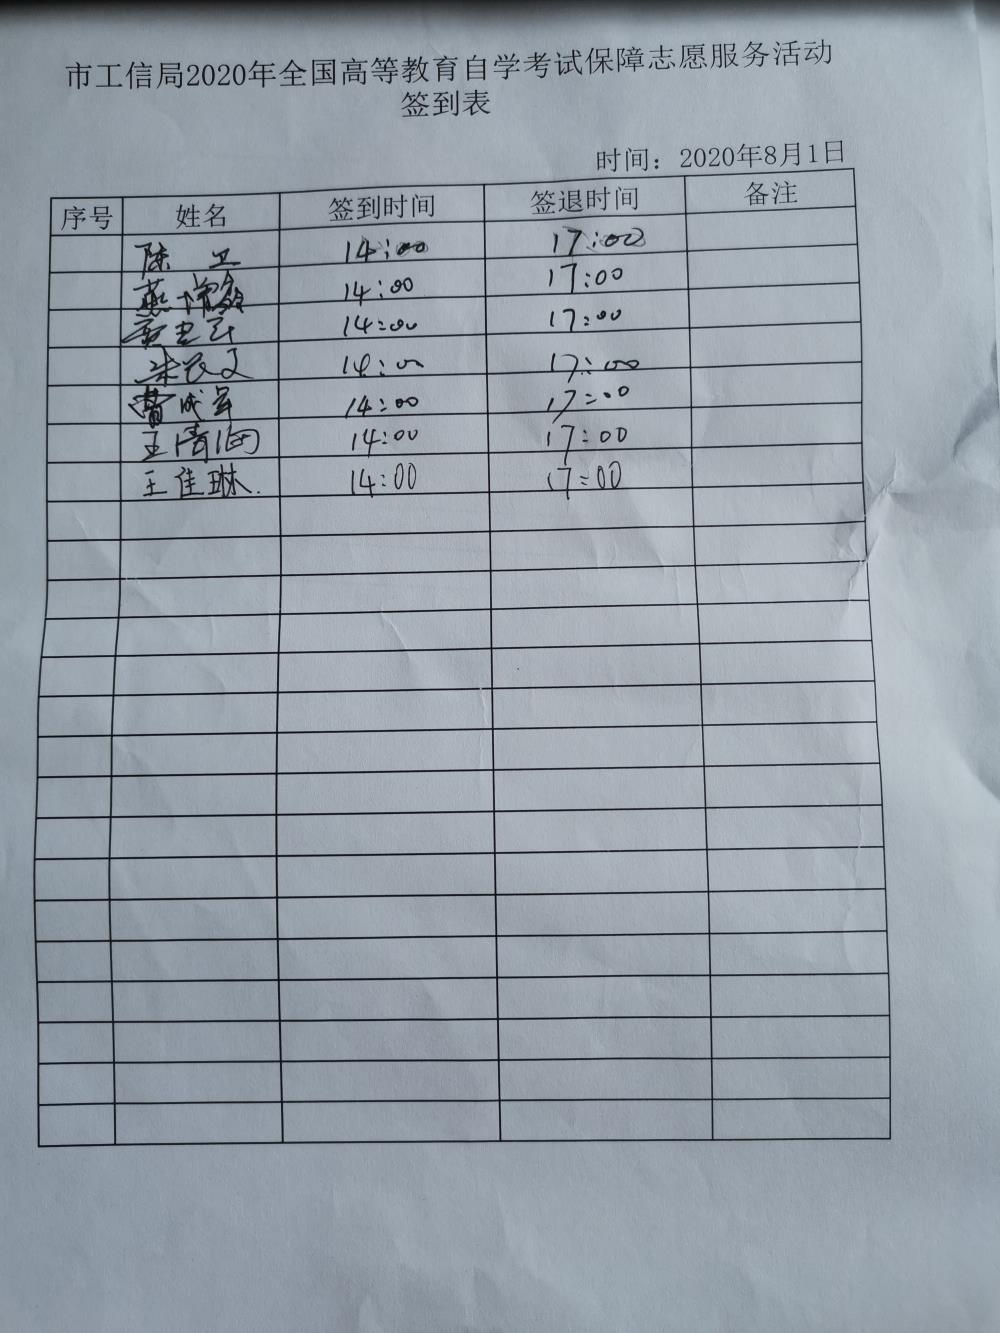 市工信局2020年全国高等教育自学考试保障志愿服务活动
签到表
时间：2020年8月1日
序号 姓名 签到时间 签退时间 备注
陈卫 14:00 17:00
14:00 17:00
14:00 17:00
14:00 17:00
曹成军 14:00 17:00
王清润 14:00 17:00
王佳琳. 14:00 17:00